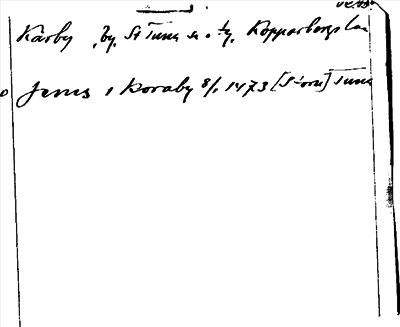 Karby, by, St Tuna sn o tg, Kopparbergs län
Jenis i Koraby 8/1 1473 [Stora] Tuna